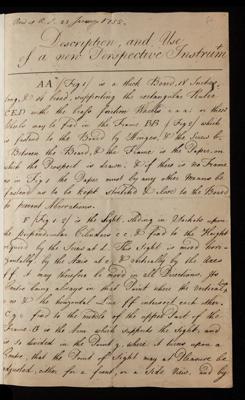 Read at R.S. 23 January 1755.
Description, and Use
of a new Perspective Instrum
AA (Fig 1) is a thick Board, 18 Inches
long, & broad, supporting the rectangular Ruler
CED with the brass
may be fixed in the Frame BB (Fig 2) which
is fastened to the Board by Hinges, & the Screws b.
Between the Board, & the Frame is the Paper, on
which the Prospect is drawn; & if there is no Frame
as in Fig the Paper must by any other Means be
fastened so as to be kept stretched & close to the Board
to prevent Alterations.
(Fig 1 2) is the Sight, sliding in upon
the perpendicular Cylinders c c, & fixed to the Height
required by the Screw at d. This Sight is moved hori-
zontally by the Axis at e; & vertically by the Axis
ff, & may therefore be moved in all Directions, its
Centre being always in that Point where the
& the horizontal Line fff intersect each other.
C g is fixed to the middle of the upper Part of the
Frame. is the Arm which supports the Sight; and
is so divided in the Point g, where it turns upon a
that the Point of Sight may at Pleasure be
adjusted, either for a front, or a side View, and by